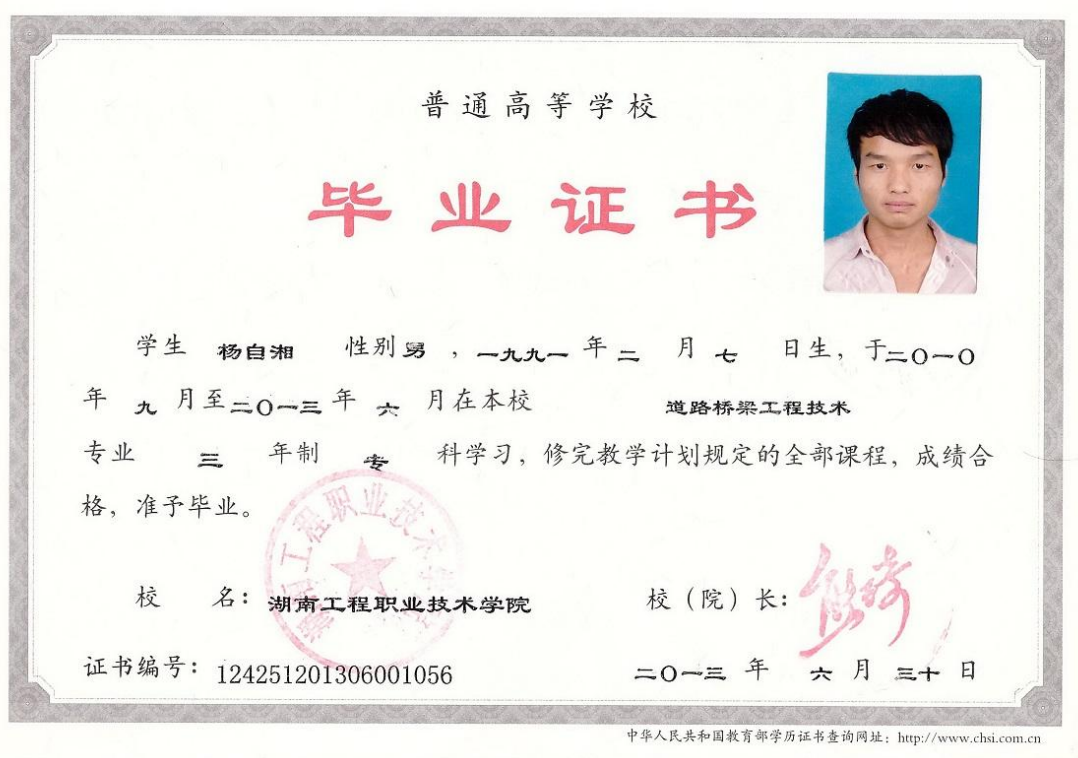 普通高等学校
毕业证书
学生 杨自湘 性别男，一九九一年二月七日生，于二〇一〇
年九月至二〇一三年六月在本校 道路桥梁工程技术
专业 三 年制 专 科学习，修完教学计划规定的全部课程，成绩合
格，准予毕业。
湖南工程职业技术学院
校 名：湖南工程职业技术学院 校（院）长：
证书编号：124251201306001056 二〇一三年六月三十日
中华人民共和国教育部学历证书查询网址：http://www.chsi.com.cn